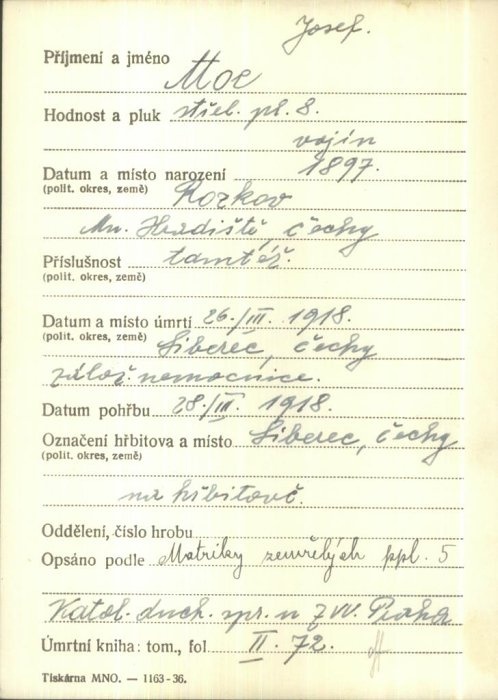 Josef.
Příjmení a jméno Moc
Hodnost a pluk střel. pl. 8.
vojín
Datum a místo narození 1897.
(polit. okres, země) Rozkov
Mn. Hradiště, čechy
Příslušnost tamtéž.
(polit. okres, země)
Datum a místo úmrtí 26./III. 1918.
(polit. okres, země) Liberec, čechy
zálož. nemocnice.
Datum pohřbu 28./III. 1918.
Označení hřbitova a místo Liberec, čechy
(polit. okres, země)
na hřbitově.
Oddělení, číslo hrobu
Opsáno podle Matriky zemřelých ppl. 5
Katol. duch. spr. u ZVV. Praha
Úmrtní kniha: tom., fol II. 72.
Tiskárna MNO. — 1163-36.